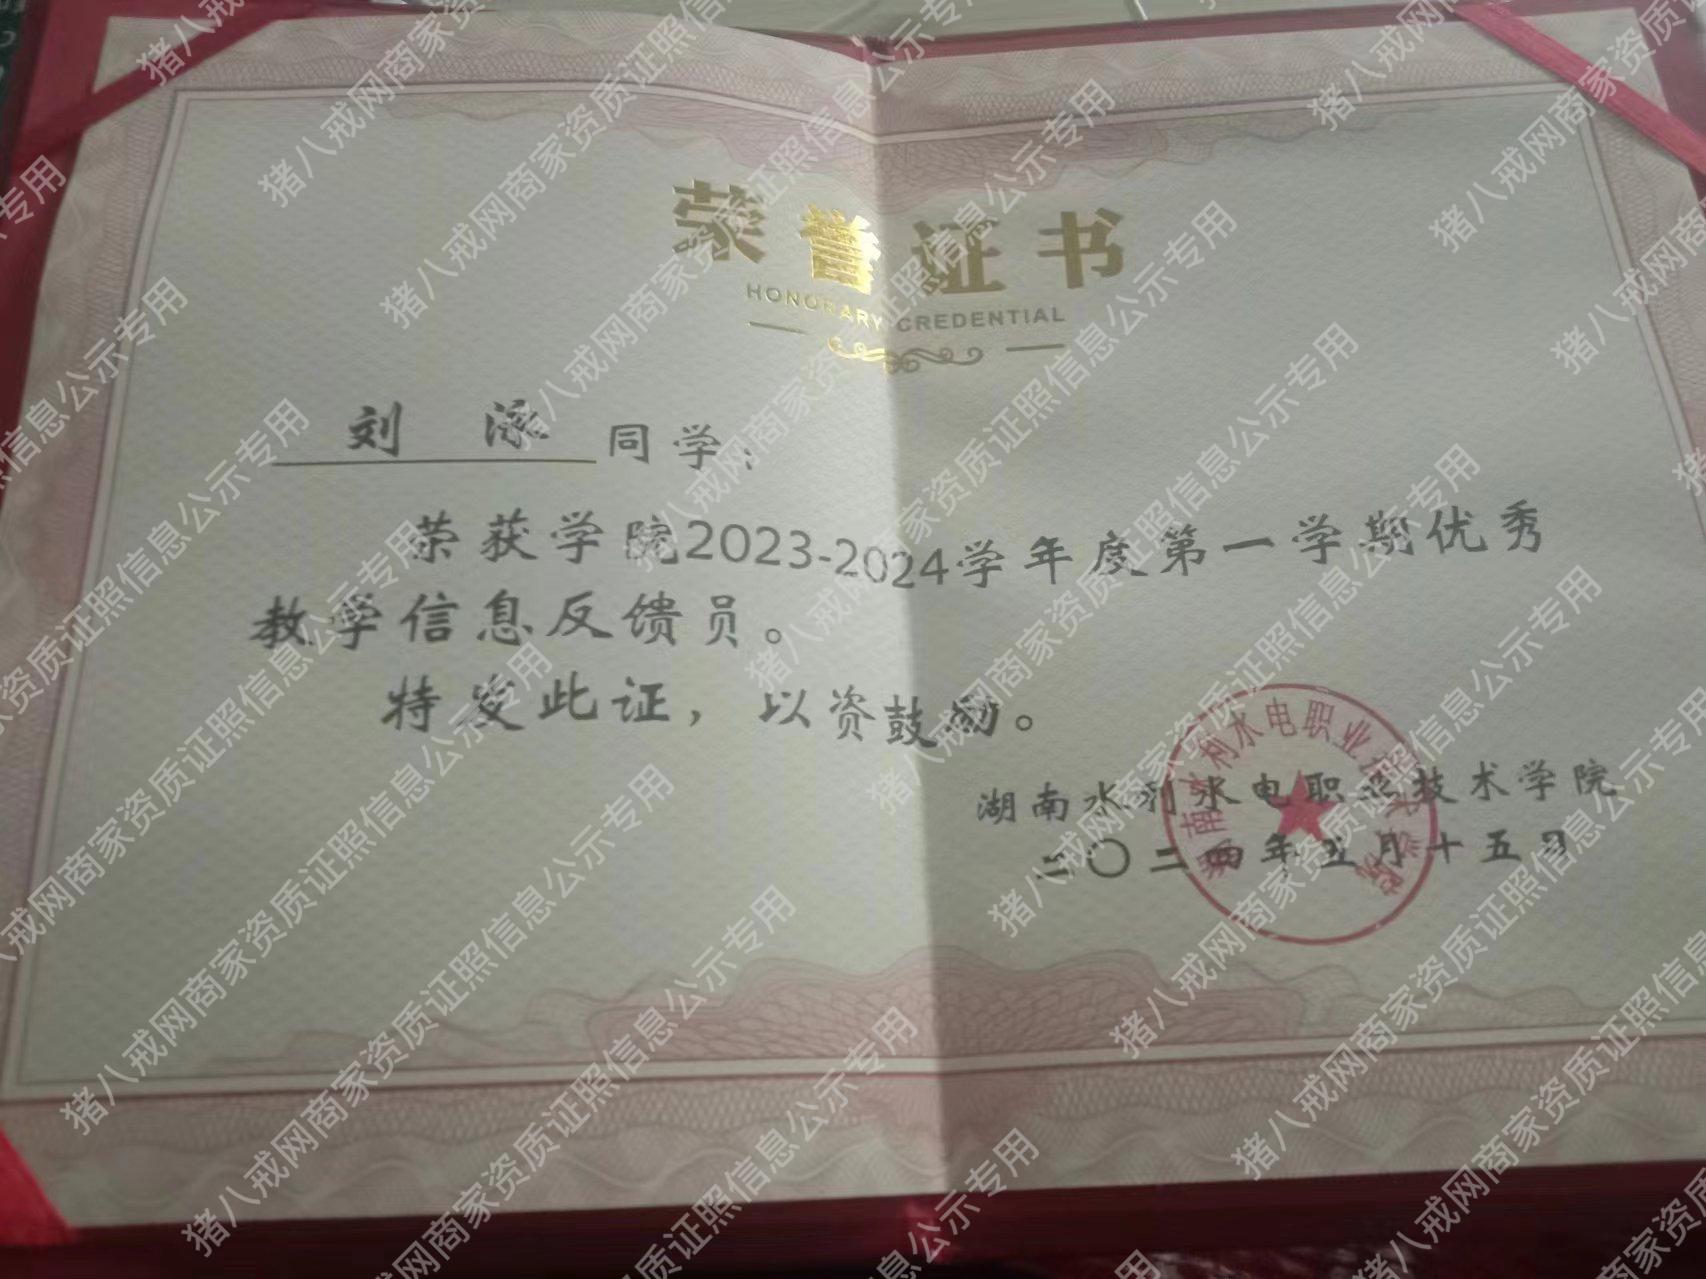 荣誉证书
HONORARY CREDENTIAL
刘 泳 同学：
荣获学院2023-2024学年度第一学期优秀
教学信息反馈员。
特发此证，以资鼓励。
湖南水利水电职业技术学院
二〇二四年五月十五日
湖南水利水电职业技术学院
猪八戒网商家资质证照信息公示专用